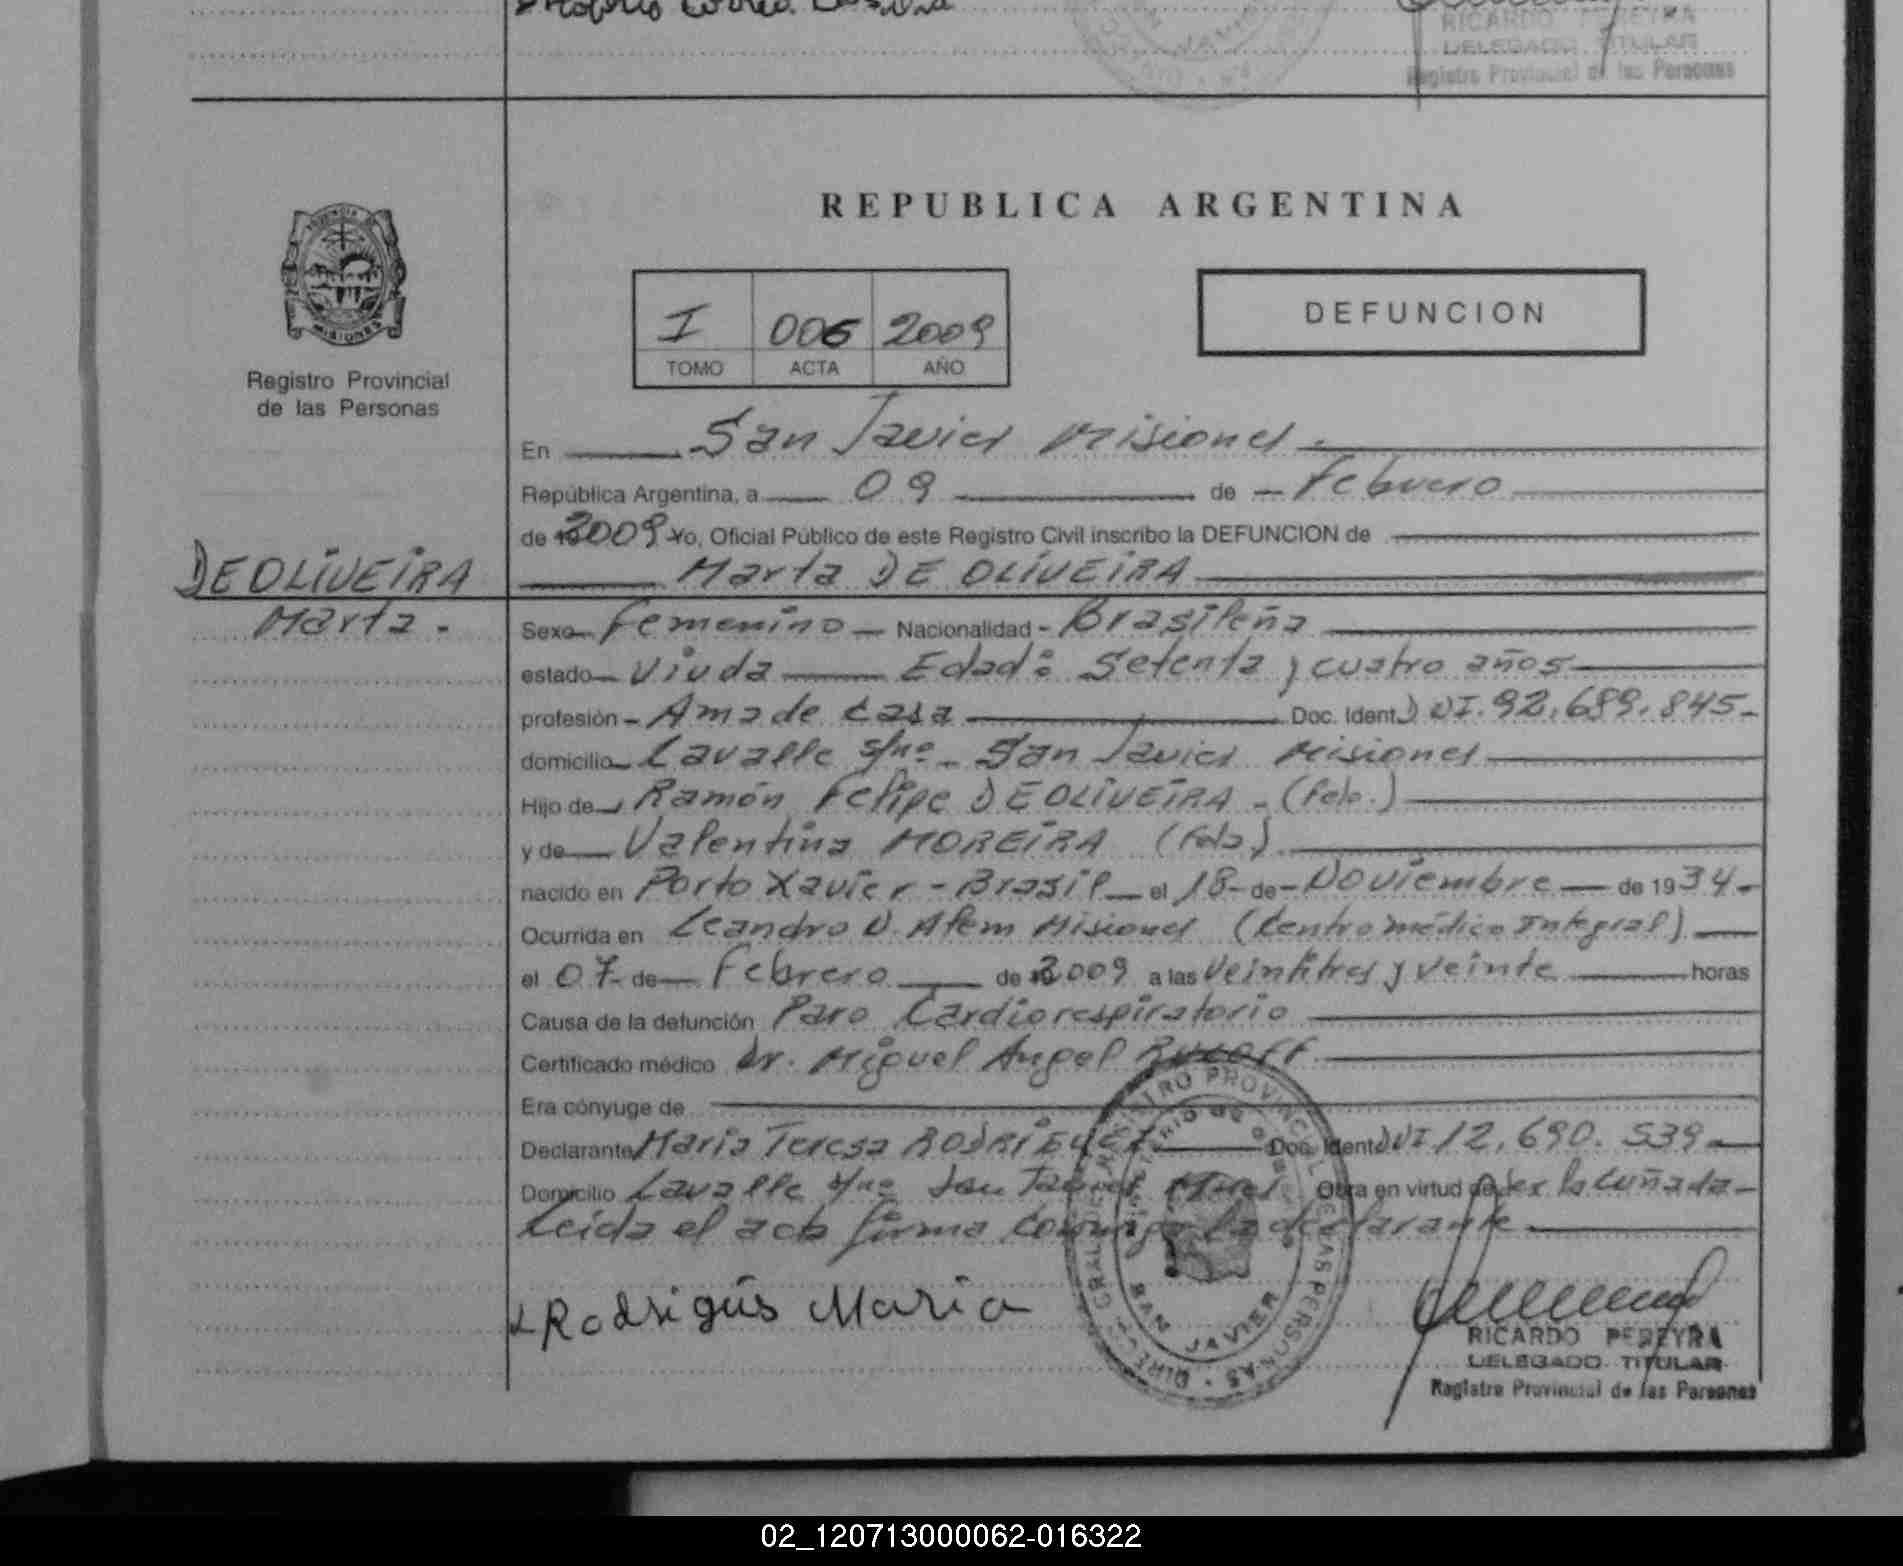 RICARDO PEREYRA
DELEGADO TITULAR
Registro Provincial de las Personas
REPUBLICA ARGENTINA
I 006 2009
TOMO ACTA AÑO
DEFUNCION
MISIONES
Registro Provincial
de las Personas
En San Javier Misiones.
República Argentina, a 09 de Febrero
de 2009 Yo, Oficial Público de este Registro Civil inscribo la DEFUNCION de
DE OLIVEIRA
Marta DE OLIVEIRA
Marta.
Sexo Femenino Nacionalidad Brasileña
estado Viuda Edad: Setenta y cuatro años
profesión Ama de casa Doc. Ident. DNI. 92.689.845
domicilio Lavalle s/nº San Javier Misiones
Hijo de Ramón Felipe DE OLIVEIRA (falo.)
y de Valentina MOREIRA (fala)
nacido en Porto Xavier - Brasil el 18 de Noviembre de 1934
Ocurrida en Leandro N. Alem Misiones (Centro médico Integral)
el 07 de Febrero de 2009 a las Veintitres y veinte horas
Causa de la defunción Paro Cardiorespiratorio
Certificado médico Dr. Miguel Angel
Era cónyuge de
Declarante Maria Teresa RODRIGUEZ Doc. Ident. DNI 12.690.539
Domicilio Lavalle s/nº San Javier Mnes Obra en virtud de ser la cuñada
Leida el acta firma conmigo la declarante
Rodrigüs Maria
SAN JAVIER
RICARDO PEREYRA
DELEGADO TITULAR
Registro Provincial de las Personas
02_120713000062-016322